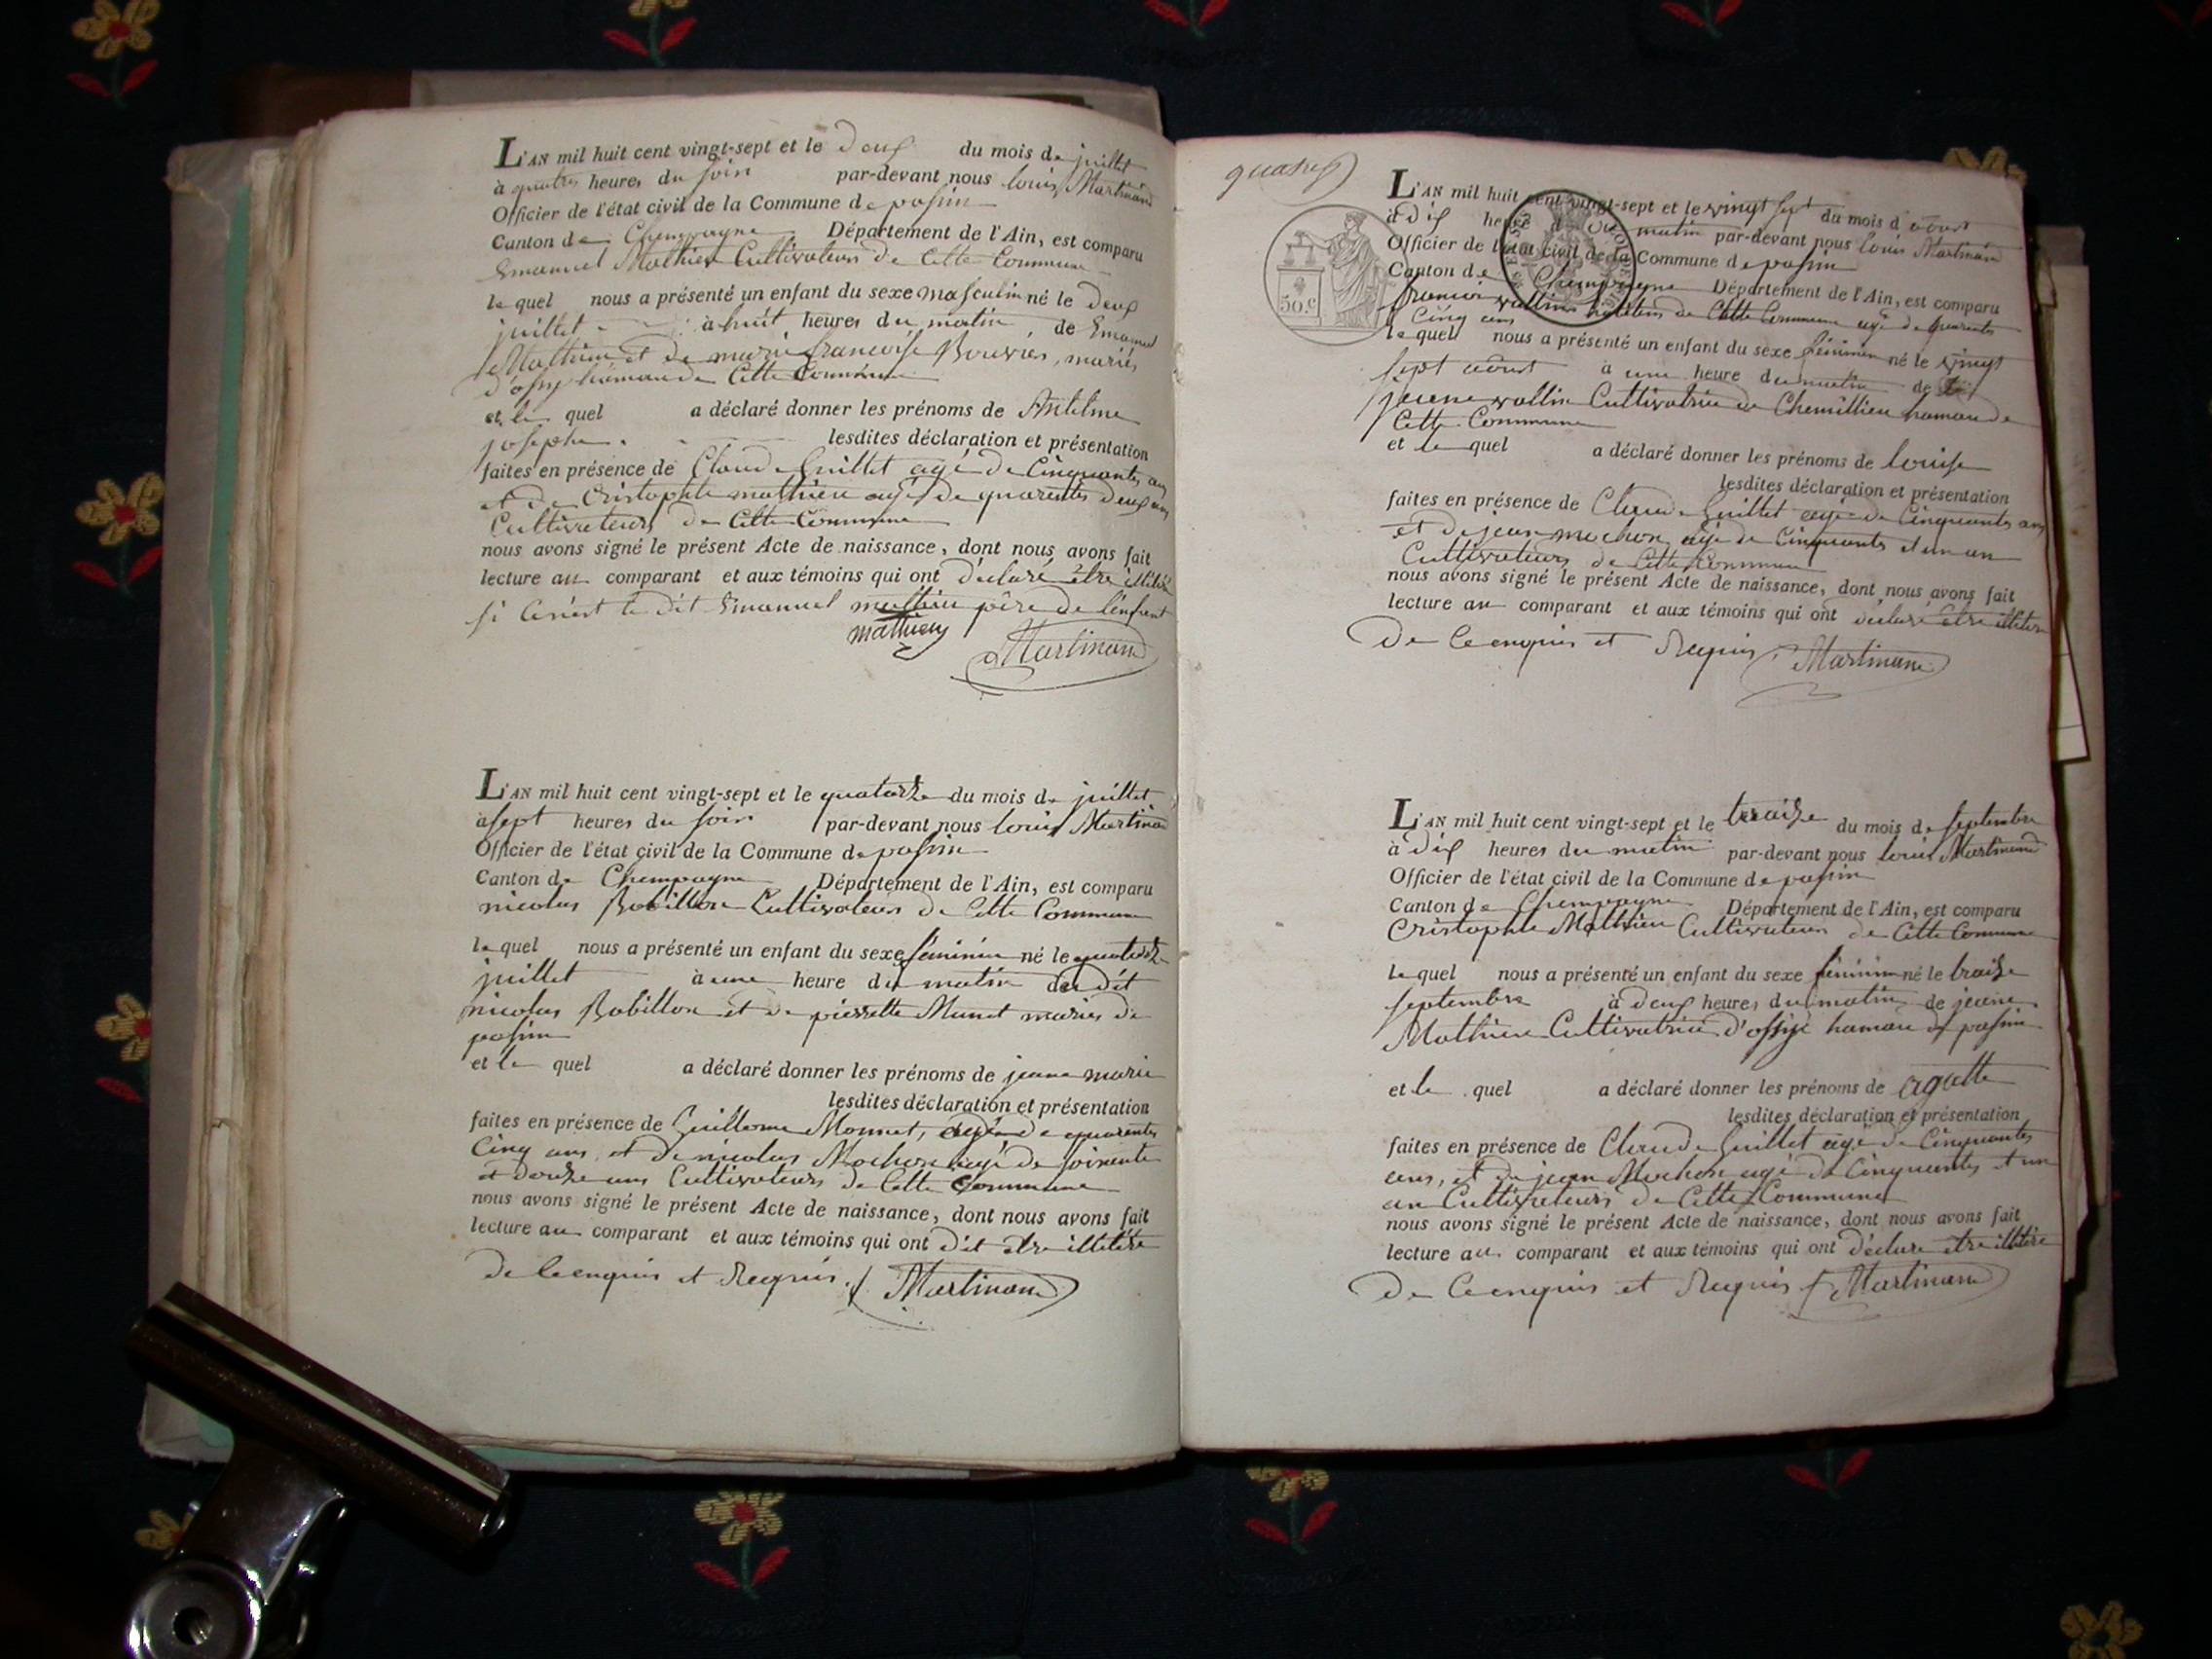 L'AN mil huit cent vingt-sept et le deux du mois de juillet
à quatres heures du soir par-devant nous louis Martinand
Officier de l'état civil de la Commune de passin
Canton de Champagne Département de l'Ain, est comparu
Emanuel Mathieu Cultivateur de Cette Commune
le quel nous a présenté un enfant du sexe masculin né le deux
juillet à huit heures du matin, de Emanuel
Mathieu et de marie francoise Bouvier, mariés
d' hamau de Cette Commune
et le quel a déclaré donner les prénoms de Antelme
josephe. lesdites déclaration et présentation
faites en présence de Claude Guillet agé de Cinquantes ans
et de Cristophle mathieu agé de quarentes deux ans
Cultivateurs de Cette Commune
nous avons signé le présent Acte de naissance, dont nous avons fait
lecture au comparant et aux témoins qui ont déclaré être illitéré
si Cenest le dit Emanuel mathieu père de l'enfant
mathieu Martinand
L'AN mil huit cent vingt-sept et le quatorze du mois de juillet
à sept heures du soir par-devant nous louis Martinand
Officier de l'état civil de la Commune de passin
Canton de Champagne Département de l'Ain, est comparu
nicolas Bobillon Cultivateur de Cette Commune
le quel nous a présenté un enfant du sexe féminin né le quatorze
juillet à une heure du matin du dit
nicolas Bobillon et de pierrette Munet mariés de
passin
et le quel a déclaré donner les prénoms de jeane marie
lesdites déclaration et présentation
faites en présence de Guillome Monnet, agé de quarentes
Cinq ans et de nicolas Mochon agé de soixente
et douze ans Cultivateurs de Cette Commune
nous avons signé le présent Acte de naissance, dont nous avons fait
lecture au comparant et aux témoins qui ont dit etre illitéré
de Ce enquis et Requis. Martinand
quatre
50 c.
L'AN mil huit cent vingt-sept et le vingt sept du mois d'aout
à dix heures du matin par-devant nous louis Martinand
Officier de l'état civil de la Commune de passin
Canton de Champagne Département de l'Ain, est comparu
francois vallin de Cette Commune agé de quarente
Cinq ans
le quel nous a présenté un enfant du sexe féminin né le vingt
sept aout à une heure du matin de
jeane vallin Cultivatrice de Chemillieu hamau de
Cette Commune
et le quel a déclaré donner les prénoms de louise
lesdites déclaration et présentation
faites en présence de Claude Guillet agé de Cinquantes ans
et de jean mochon agé de Cinquantes et un an
Cultivateurs de Cette Commune
nous avons signé le présent Acte de naissance, dont nous avons fait
lecture au comparant et aux témoins qui ont déclaré etre illitéré
de Ce enquis et Requis Martinand
L'AN mil huit cent vingt-sept et le traize du mois de septembre
à dix heures du matin par-devant nous louis Martinand
Officier de l'état civil de la Commune de passin
Canton de Champagne Département de l'Ain, est comparu
Cristophle Mathieu Cultivateur de Cette Commune
le quel nous a présenté un enfant du sexe féminin né le traize
septembre à deux heures du matin de jeane
Mathieu Cultivatrice d' hamau de passin
et le quel a déclaré donner les prénoms de agatte
lesdites déclaration et présentation
faites en présence de Claude Guillet agé de Cinquantes
ans, et de jean Mochon agé de Cinquantes et un
an Cultivateurs de Cette Commune
nous avons signé le présent Acte de naissance, dont nous avons fait
lecture au comparant et aux témoins qui ont déclare etre illitéré
De Ce enquis et Requis Martinand